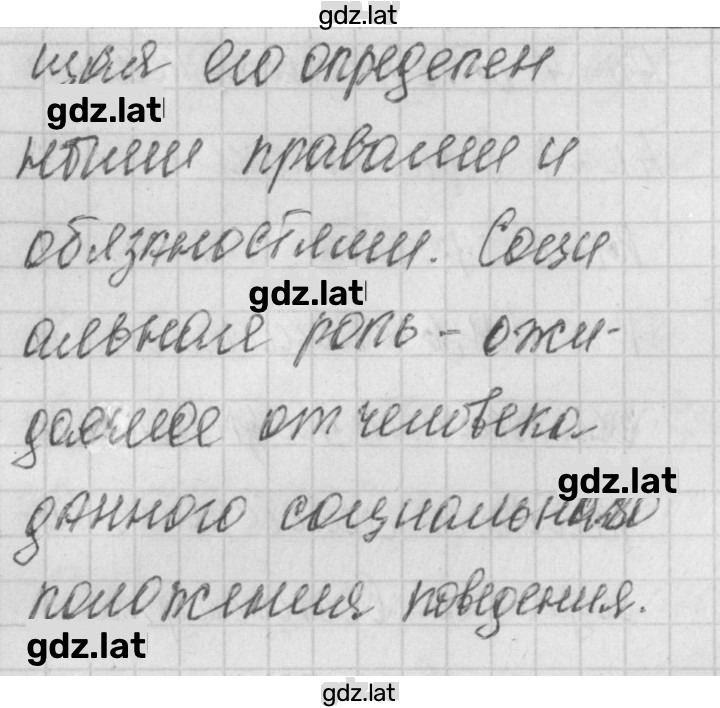 gdz.lat
щая его определен
gdz.lat
ными правами и
обязностями. Соци
gdz.lat
альная роль - ожи-
даемое от человека
gdz.lat
данного социального
положения поведения.
gdz.lat
gdz.lat